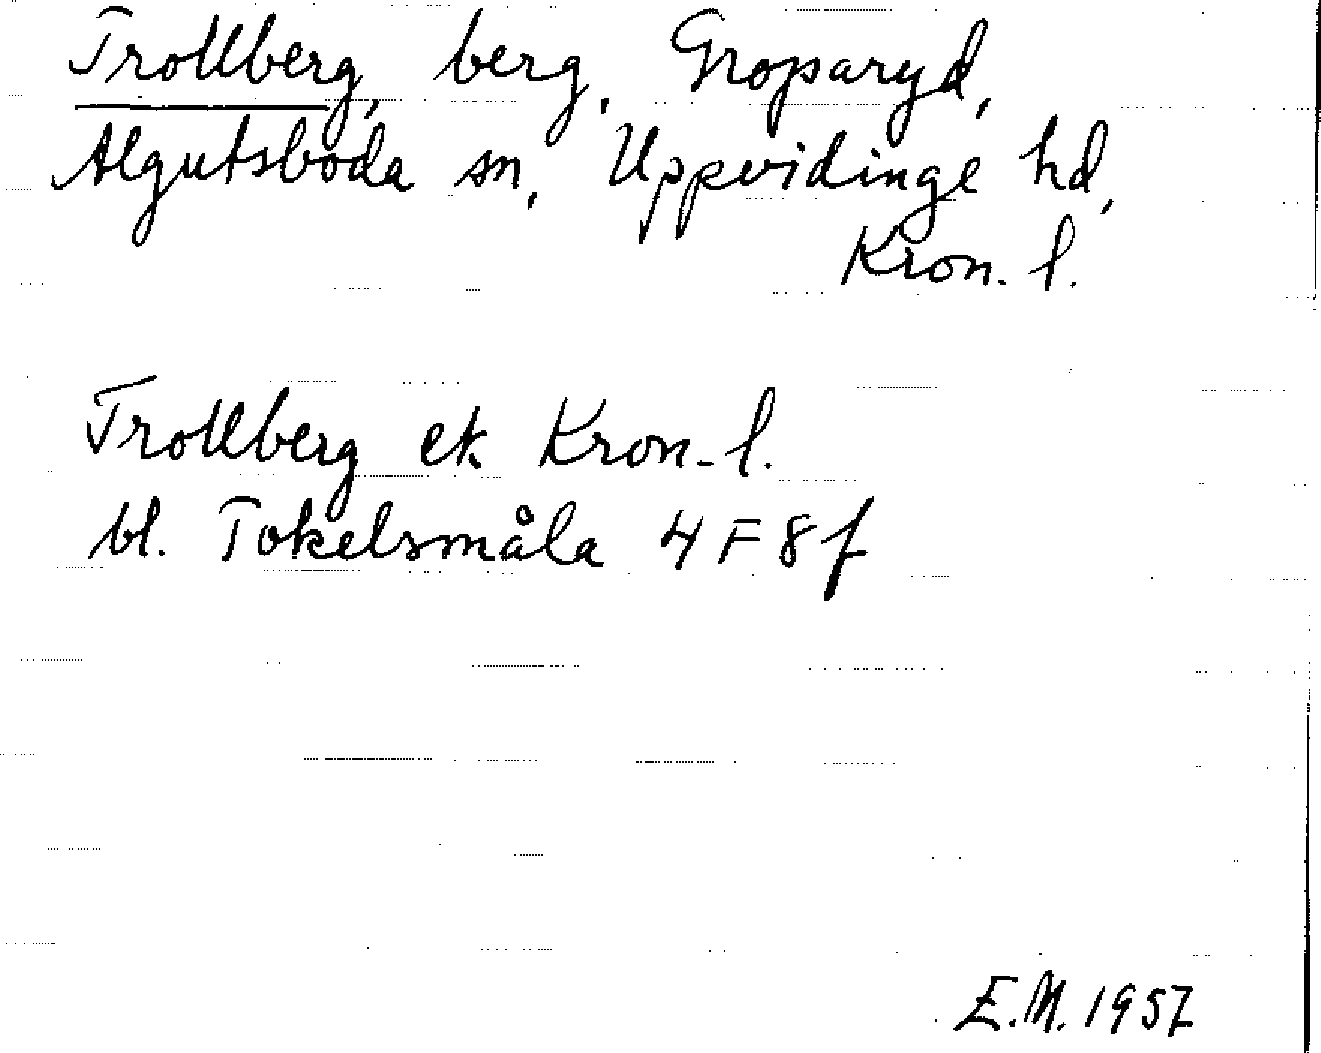 Trollberg, berg, Groparyd,
Algutsboda sn, Uppvidinge hd,
Kron. l.
Trollberg ek Kron. l.
bl. Tokelsmåla 4 F 8 f
E.M. 1957